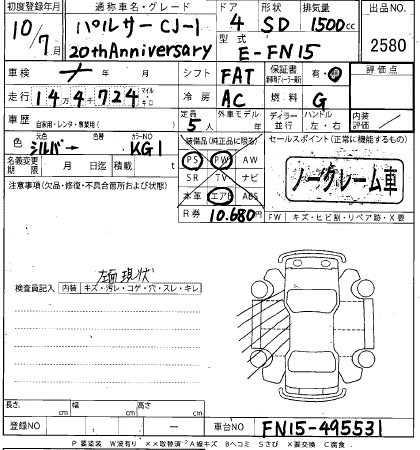 初度登録年月 通称車名・グレード ドア 形状 排気量 出品NO
10/7月 パルサー CJ-1 20th Anniversary 4 SD 1500cc 2580
型式 E-FN15
車検 年 月 シフト FAT 保証書 有 評価点
走行 14万4千724 マイル キロ 冷房 AC 燃料 G
車歴 自家用・レンタ・専業用( ) 定員 5人 外車モデル 年 ディーラー 並行 ハンドル 左・右 内装 評価
色 元色 シルバー 色替 カラーNO KG1 装備品(純正品に限る) セールスポイント(正常に機能するもの)
名義変更期限 月 日迄 積載 t PS PW AW
ノークレーム車
注意事項(欠品・修復・不具合箇所および状態) SR TV ナビ
本革 エアB ABS
R券 10.680円 FW キズ・ヒビ割・リペア跡・X要
左面現状
検査員記入 内装 キズ・汚レ・コゲ・穴・スレ・キレ
長さ cm 幅 cm 高さ cm
登録NO 車台NO FN15-495531
P要塗装 W波有り ××取替済 A線キズ Bヘコミ Sさび X要交換 C腐食.